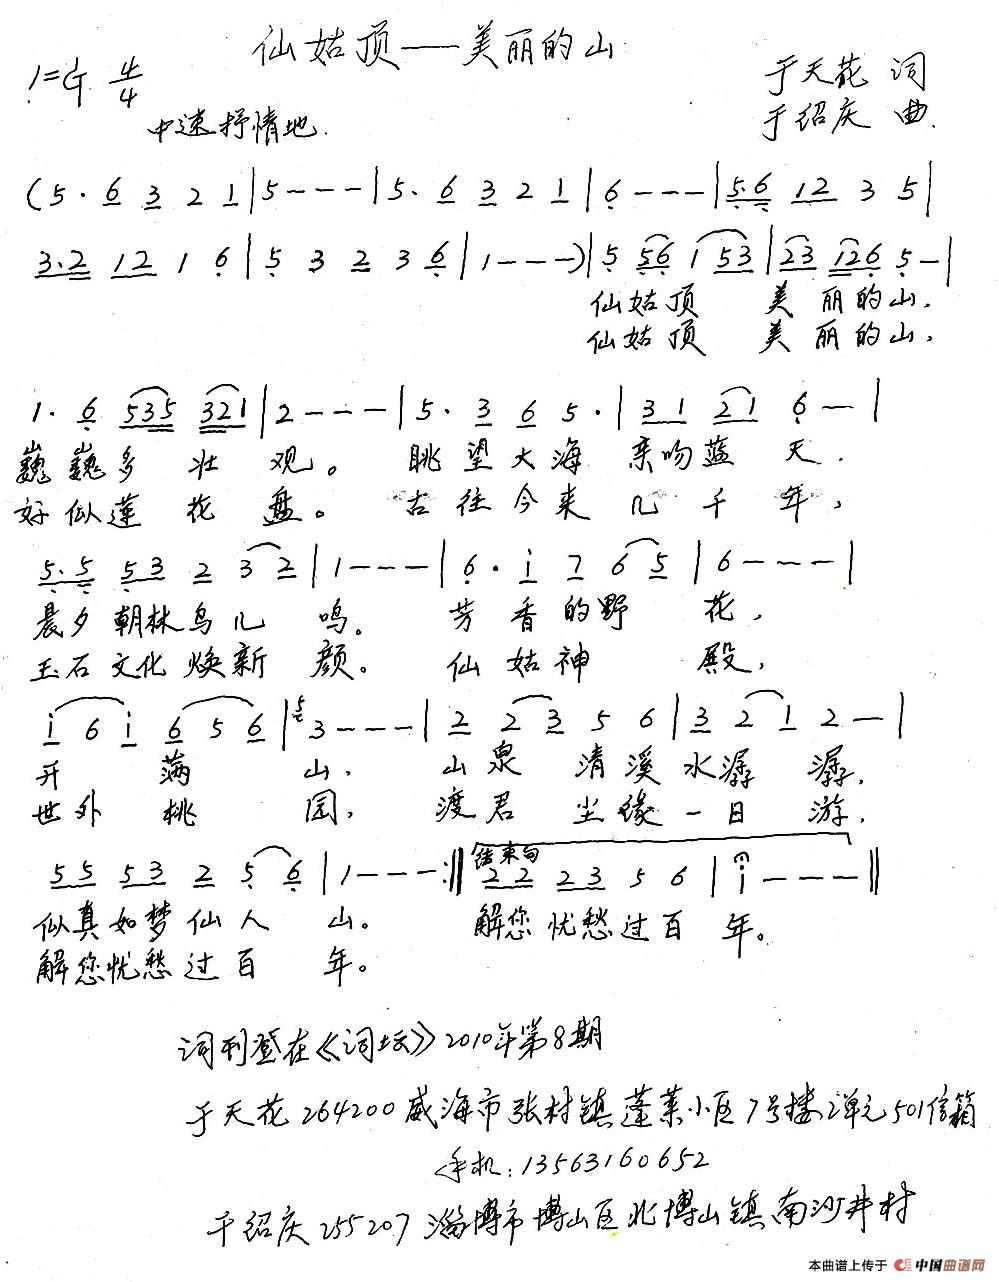 仙姑顶——美丽的山
1=G 4/4
于天花 词
中速抒情地
于绍庆 曲
(5· 6 3 2 1|5---|5· 6 3 2 1|6---|5·6 12 3 5|
3·2 12 1 6|5 3 2 3 6|1---)|5 56 1 53|23 126 5-|
仙姑顶 美丽的山,
仙姑顶 美丽的山,
1· 6 535 321|2---|5· 3 6 5·|31 21 6-|
巍巍多壮观。 眺望大海亲吻蓝天.
好似莲花盘。 古往今来几千年,
5·5 53 2 3 2|1---|6· i 7 6 5|6---|
晨夕朝林鸟儿鸣。 芳香的野花,
玉石文化焕新颜。 仙姑神殿,
i 6 i 6 5 6|5 3---|2 2 3 5 6|3 2 1 2-|
开满山. 山泉清溪水潺潺,
世外桃园, 渡君尘缘一日游,
55 53 2 5 6|1---:‖结束句 22 23 5 6|i---‖
似真如梦仙人山。 解您忧愁过百年。
解您忧愁过百年。
词刊登在《词坛》2010年第8期
于天花 264200 威海市张村镇蓬莱小区7号楼2单元501信箱
手机:13563160652
于绍庆 255207 淄博市博山区北博山镇南沙井村
本曲谱上传于 中国曲谱网